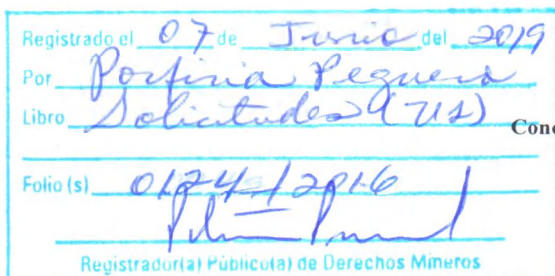 Registrado el 07 de Junio del 2019
Por Porfiria Peguero
Libro Solicitudes (US) Conc
Folio (s) 0124/2016
Registrador(a) Público(a) de Derechos Mineros